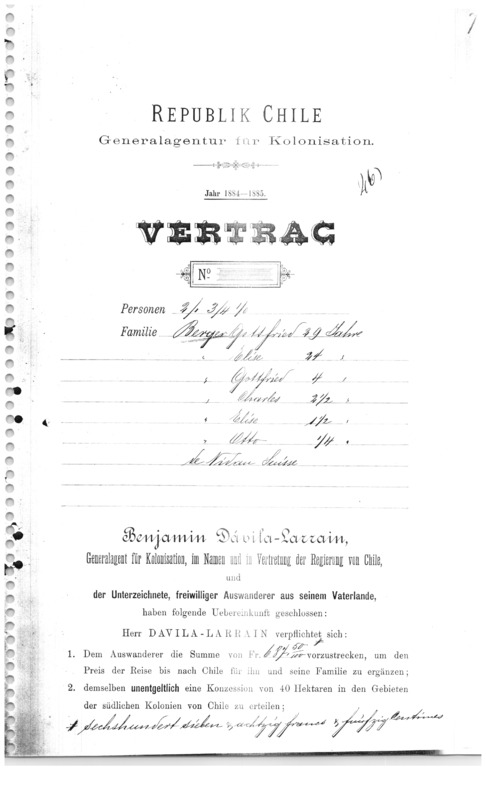 REPUBLIK CHILE
Generalagentur für Kolonisation.
Jahr 1884—1885.
VERTRAG
No
Personen 2/1 3/4 1/0
Familie Berger Gottfried 29 Jahre
" Elise 24 "
" Gottfried 4 "
" Charles 2 1/2 "
" Elise 1 1/2 "
" Otto 1/4 "
de Nidau Suisse
Benjamin Dávila-Larrain,
Generalagent für Kolonisation, im Namen und in Vertretung der Regierung von Chile,
und
der Unterzeichnete, freiwilliger Auswanderer aus seinem Vaterlande,
haben folgende Uebereinkunft geschlossen:
Herr DAVILA-LARRAIN verpflichtet sich:
1. Dem Auswanderer die Summe von Fr. 687 50/100 vorzustrecken, um den
Preis der Reise bis nach Chile für ihn und seine Familie zu ergänzen;
2. demselben unentgeltlich eine Konzession von 40 Hektaren in den Gebieten
der südlichen Kolonien von Chile zu erteilen;
sechshundert sieben & achtzig francs & fünfzig Centimes